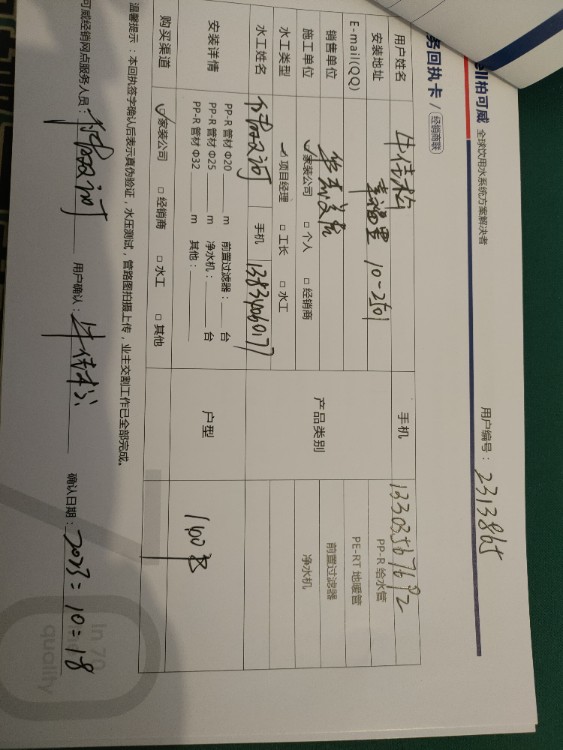 柏可威 全球饮用水系统方案解决者
用户编号：2313865
务回执卡 / 经销商联
用户姓名 手机 13303567692
安装地址 幸福里 10-2501 PP-R 给水管
E-mail(QQ) PE-RT 地暖管
销售单位 产品类别 前置过滤器
施工单位 ☑家装公司 □ 个人 □ 经销商 净水机
水工类型 ☑ 项目经理 □ 工长 □ 水工
水工姓名 手机
安装详情 PP-R 管材 Φ20 m 前置过滤器： 台 户型 140㎡
PP-R 管材 Φ25 m 净水机： 台
PP-R 管材 Φ32 m 其他：
购买渠道 ☑家装公司 □ 经销商 □ 水工 □ 其他
温馨提示：本回执签字确认后表示真伪验证，水压测试，管路图拍摄上传，业主交割工作已全部完成。
可威经销网点服务人员： 用户确认： 确认日期：2023=10=18